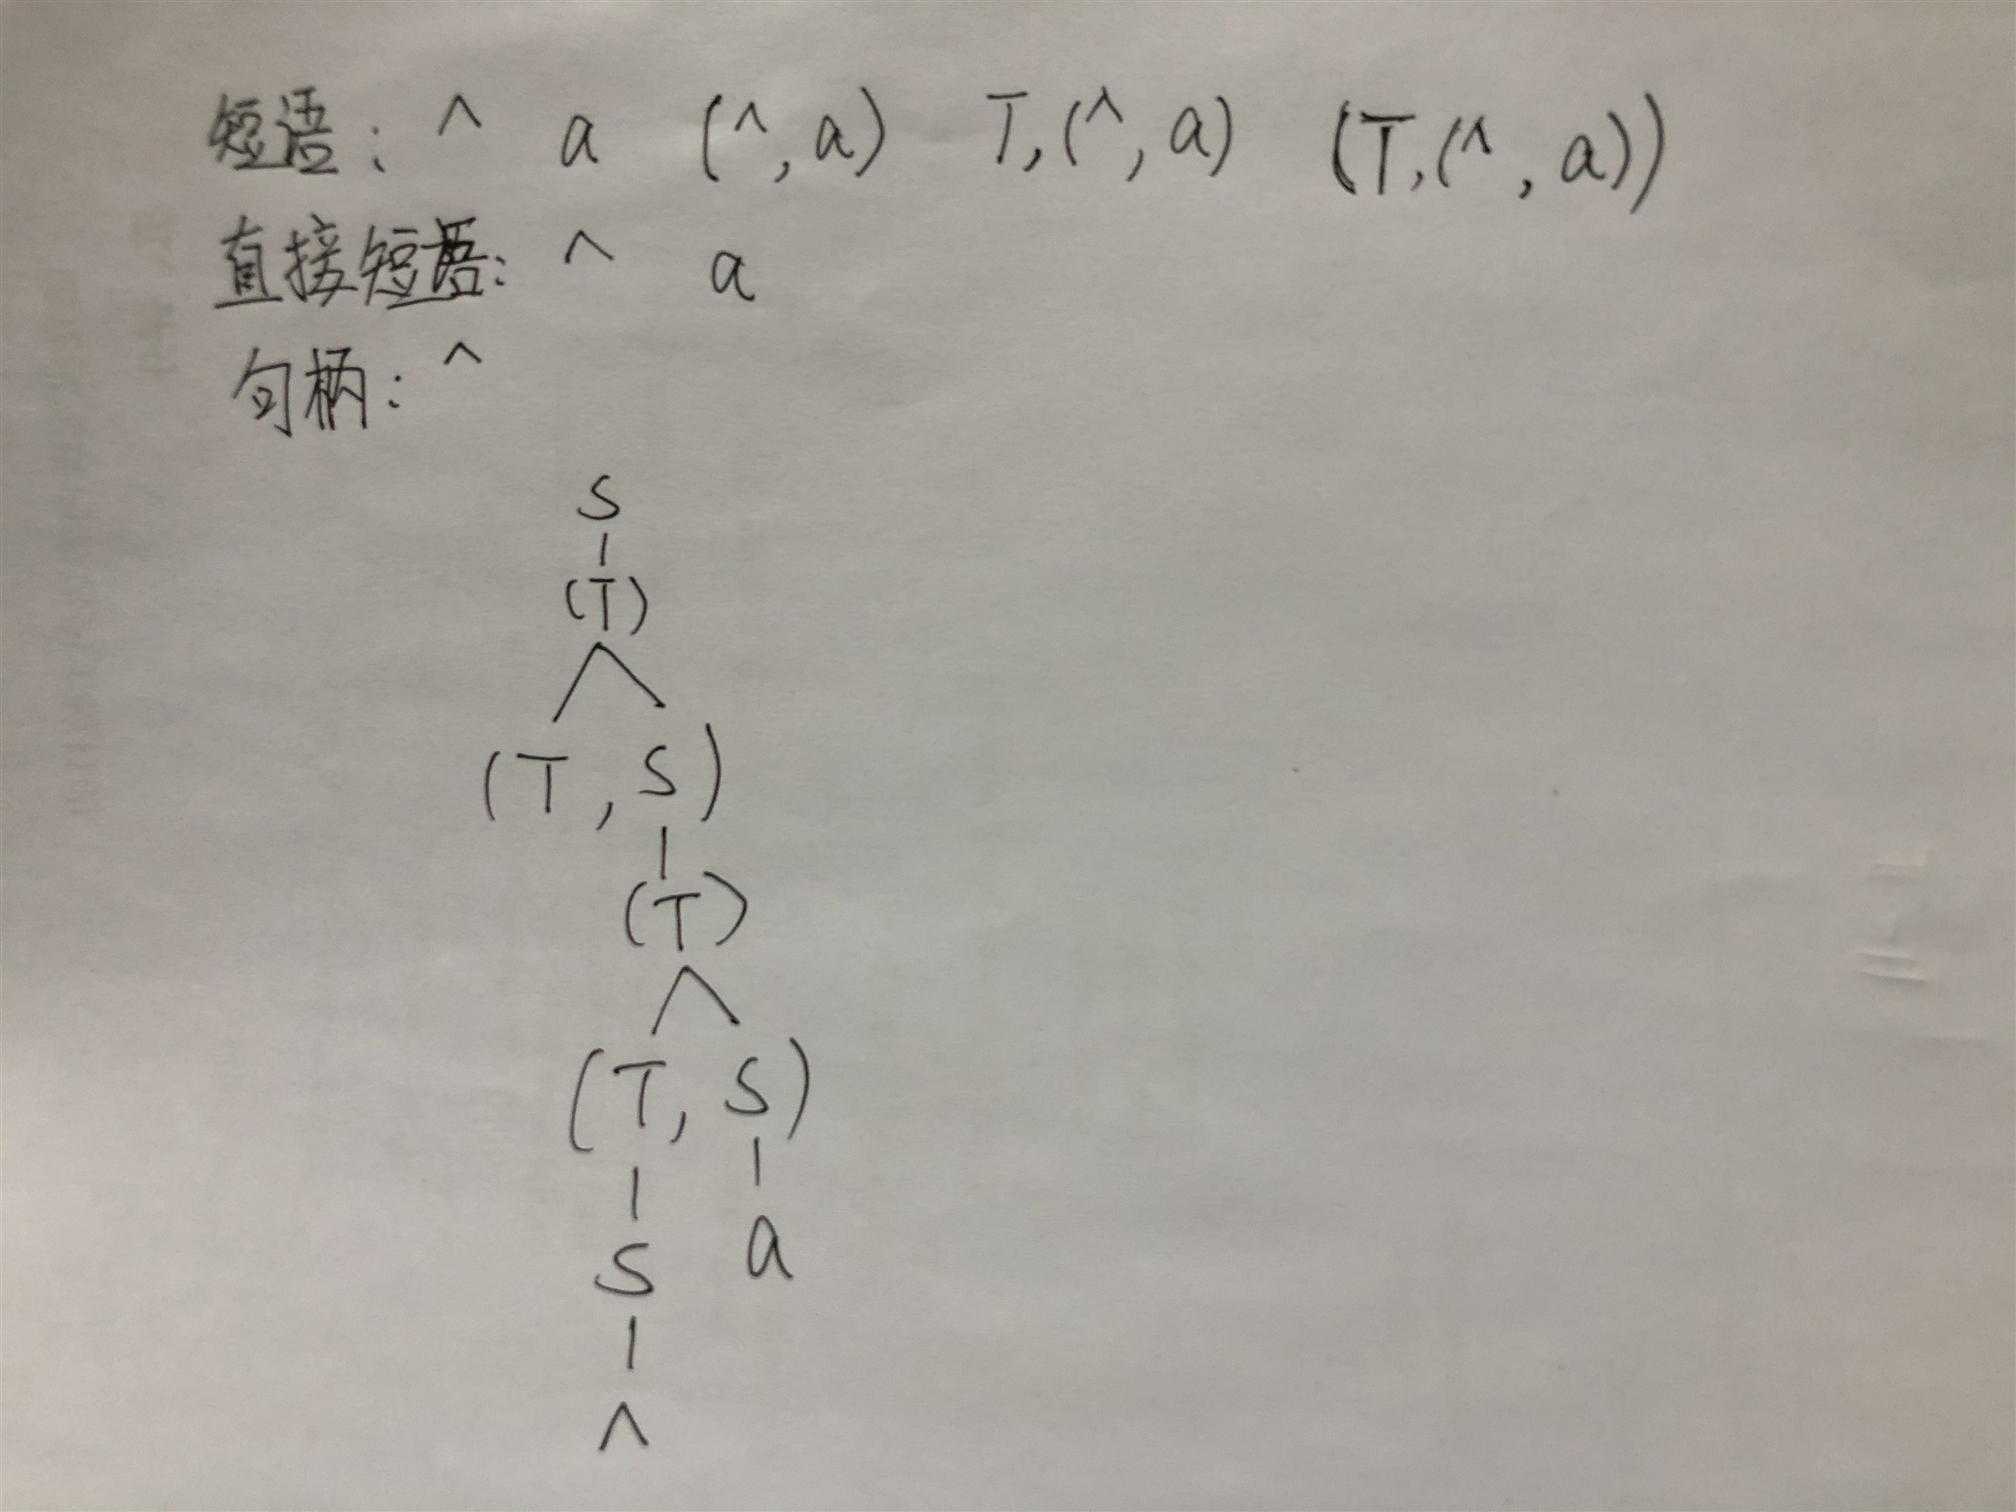 短语: ^ a (^,a) T,(^,a) (T,(^,a))
直接短语: ^ a
句柄: ^
S
(T)
(T,S)
(T)
(T,S)
S a
^